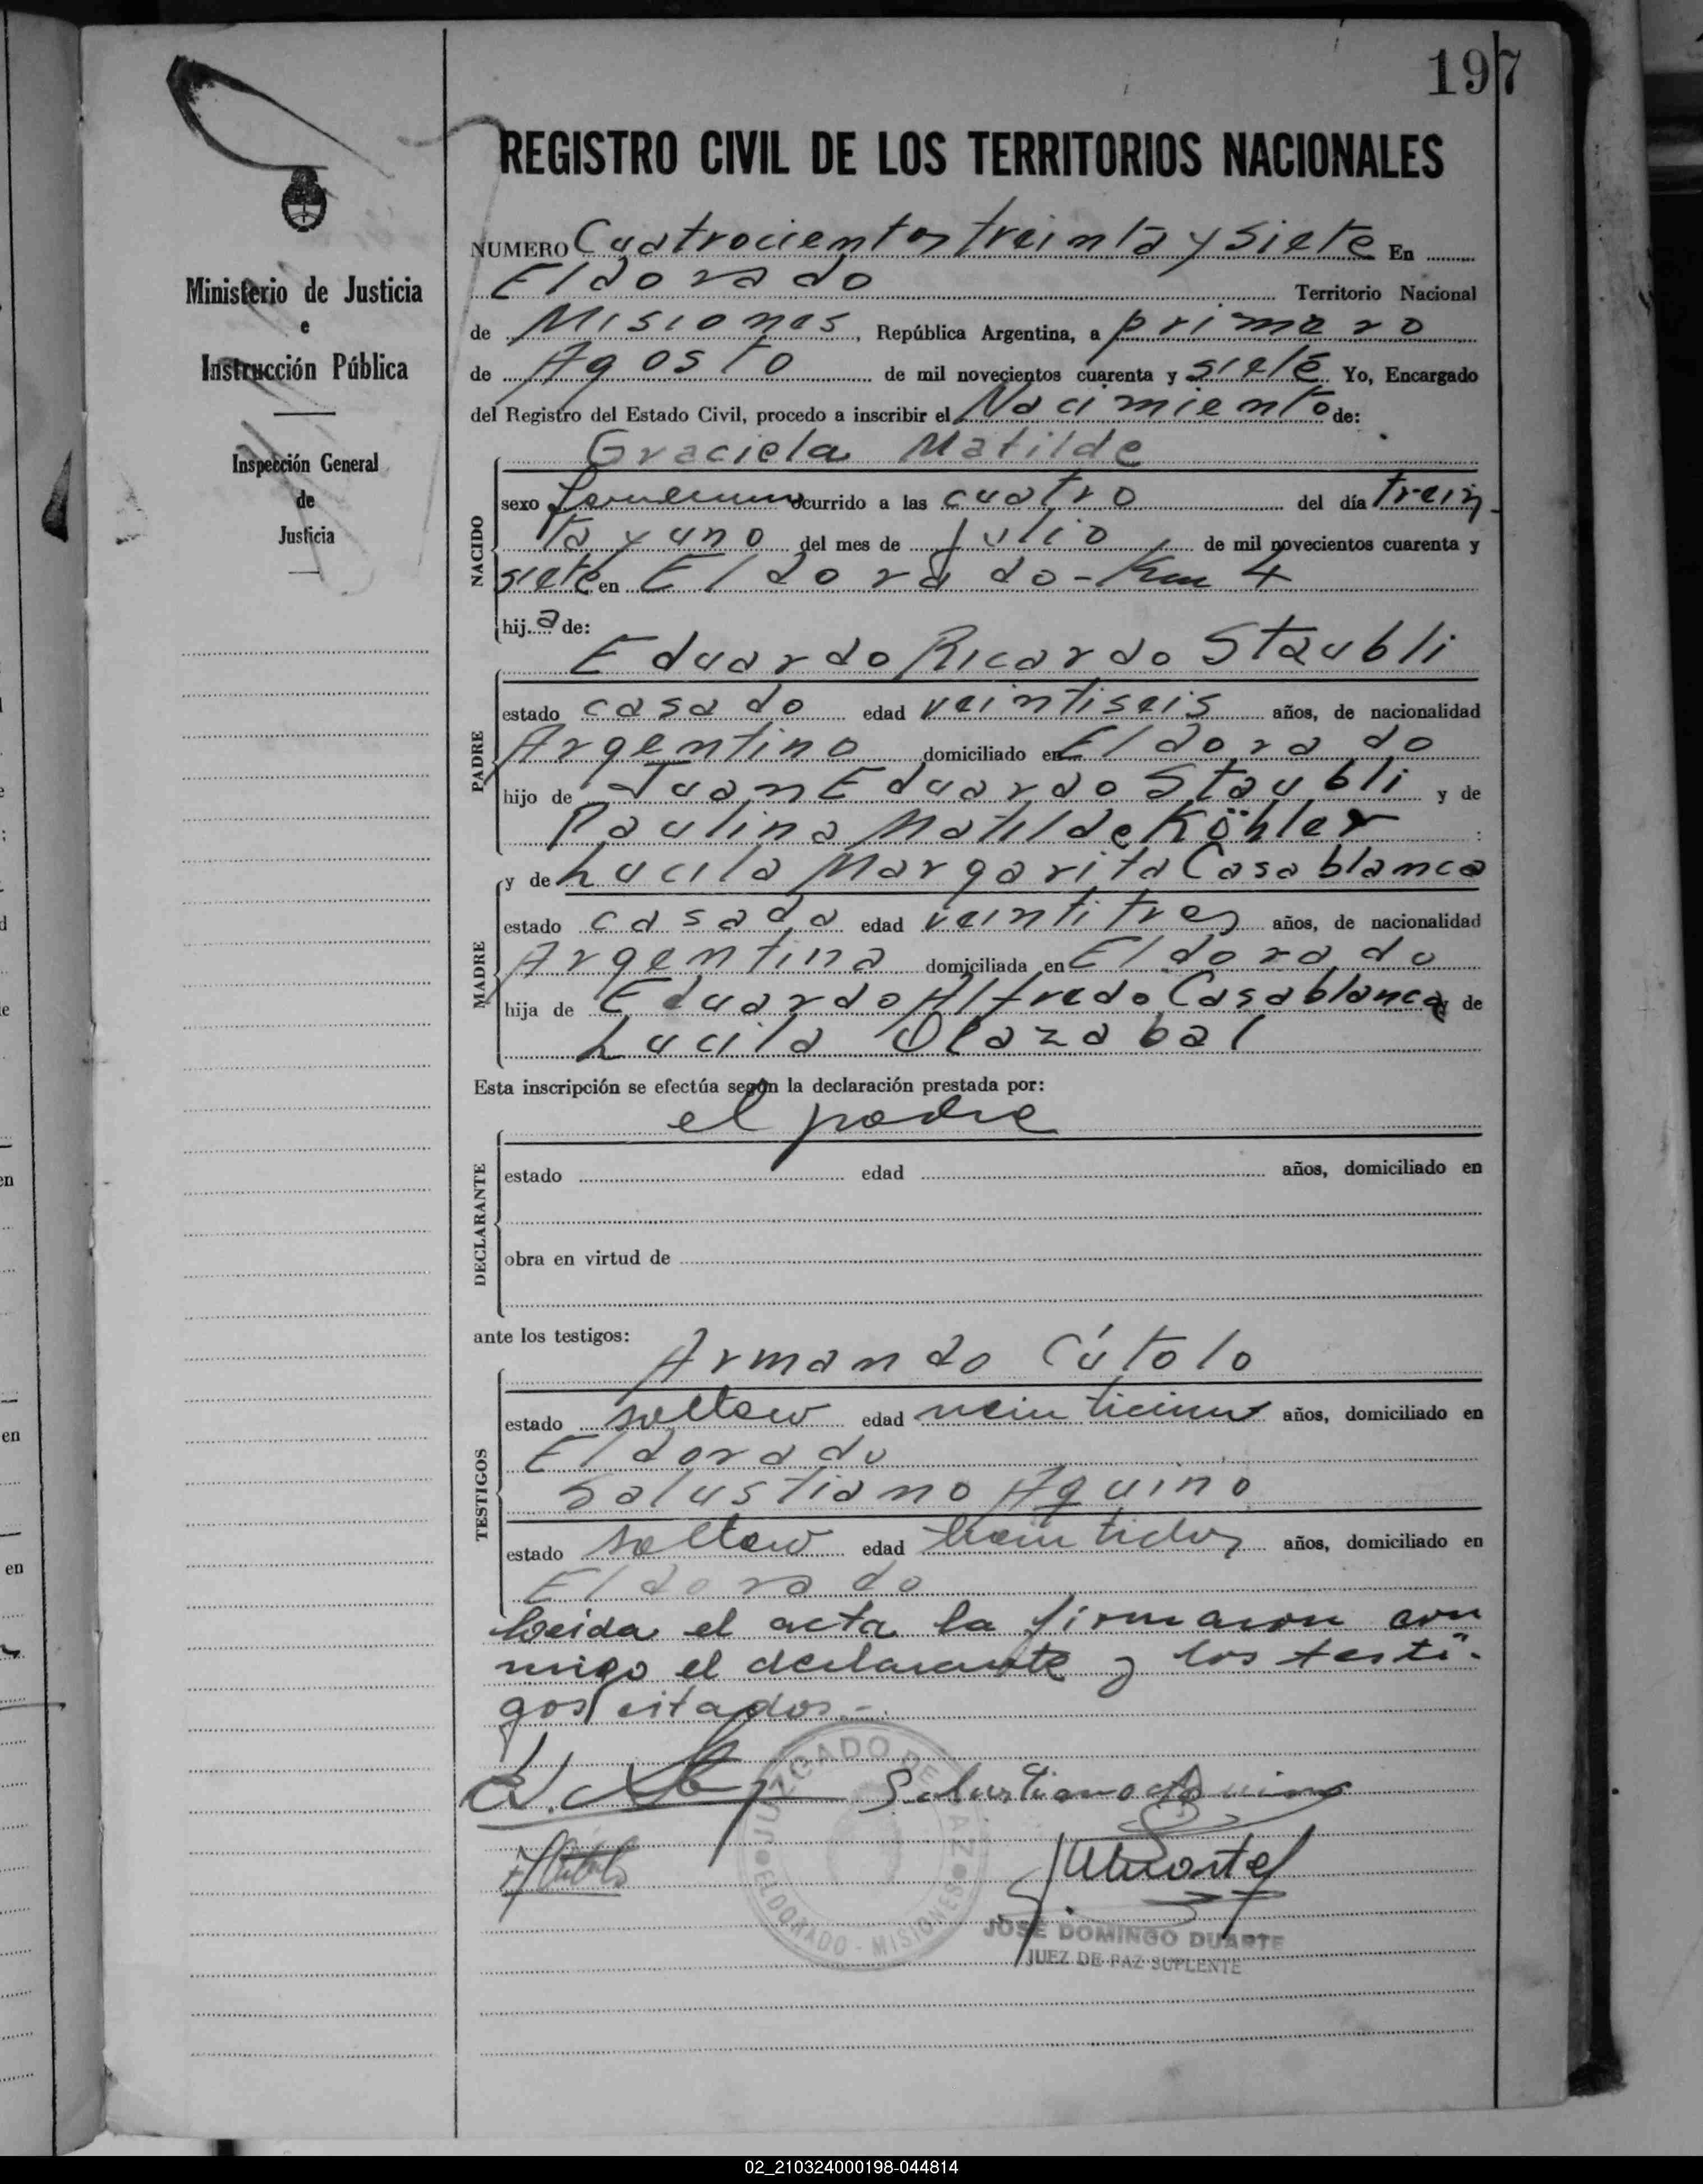 197
REGISTRO CIVIL DE LOS TERRITORIOS NACIONALES
Ministerio de Justicia
e
Instrucción Pública
Inspección General
de
Justicia
NUMERO Cuatrocientos treinta y siete En
Eldorado Territorio Nacional
de Misiones, República Argentina, a primero
de Agosto de mil novecientos cuarenta y siete Yo, Encargado
del Registro del Estado Civil, procedo a inscribir el Nacimiento de:
NACIDO
Graciela Matilde
sexo femenino ocurrido a las cuatro del día trein
ta y uno del mes de Julio de mil novecientos cuarenta y
siete en Eldorado - Km 4
hij a de:
PADRE
Eduardo Ricardo Staubli
estado casado edad veintiseis años, de nacionalidad
Argentino domiciliado en Eldorado
hijo de Juan Eduardo Staubli y de
Paulina Matilde Köhler
MADRE
y de Lucila Margarita Casablanca
estado casada edad veintitres años, de nacionalidad
Argentina domiciliada en Eldorado
hija de Eduardo Alfredo Casablanca y de
Lucila Olazabal
Esta inscripción se efectúa según la declaración prestada por:
DECLARANTE
el padre
estado edad años, domiciliado en
obra en virtud de
ante los testigos:
TESTIGOS
Armando Cútolo
estado soltero edad años, domiciliado en
Eldorado
Salustiano Aquino
estado soltero edad veintidos años, domiciliado en
Eldorado
Leida el acta la firmaron con
migo el declarante y los testi-
gos citados.-
Salustiano Aquino
JUZGADO DE PAZ
ELDORADO - MISIONES
JOSÉ DOMINGO DUARTE
JUEZ DE PAZ SUPLENTE
02_210324000198-044814